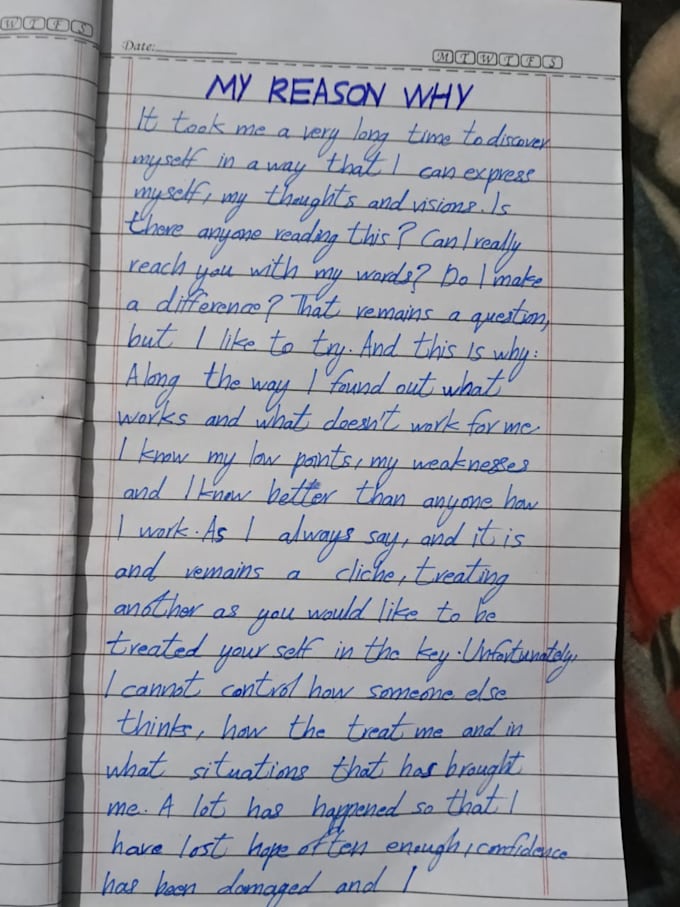 W T F S
Date:
M T W T F S
MY REASON WHY
It took me a very long time to discover
myself in a way that I can express
myself, my thoughts and visions. Is
there anyone reading this? Can I really
reach you with my words? Do I make
a difference? That remains a question,
but I like to try. And this Is why:
Along the way I found out what
works and what doesn't work for me
I know my low points, my weaknesses
and I know better than anyone how
I work. As I always say, and it is
and remains a cliche, treating
another as you would like to be
treated your self in the key. Unfortunately,
I cannot control how someone else
thinks, how the treat me and in
what situations that has brought
me. A lot has happened so that I
have lost hope often enough, confidence
has been damaged and I